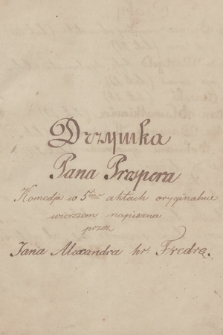 Drzymka
Pana Prospera
Komedja w 5ciu aktach oryginalnie
wierszem napisana
przez
Jana Alexandra hr Fredrę.